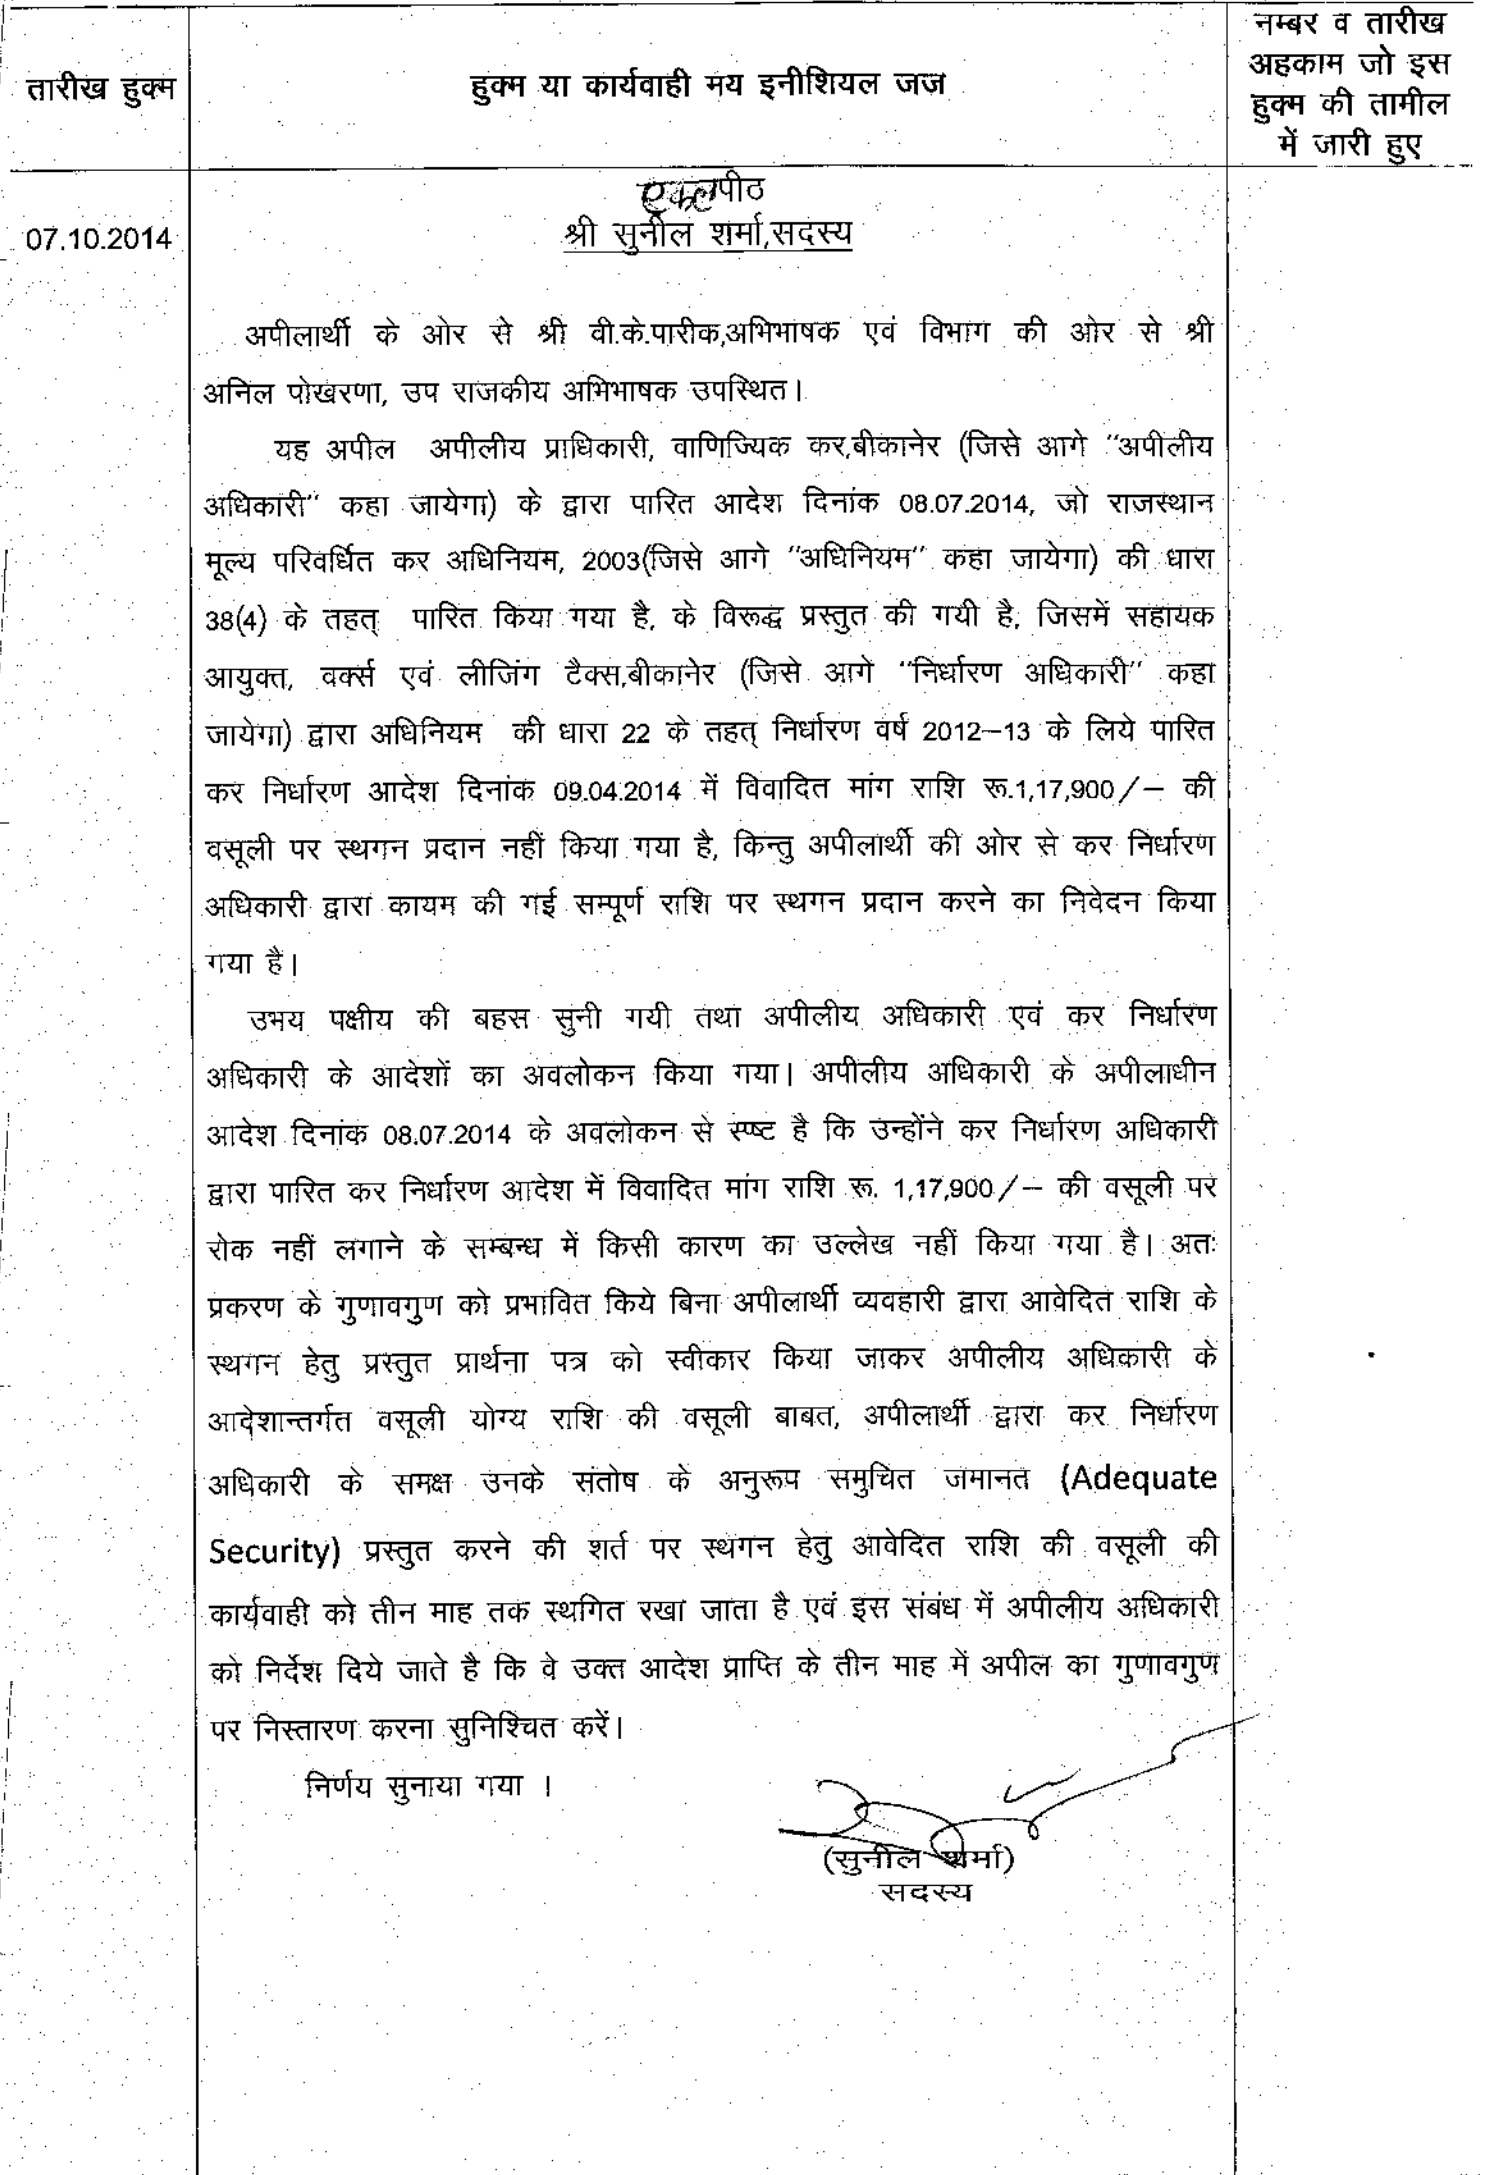 तारीख हुक्म
हुक्म या कार्यवाही मय इनीशियल जज
नम्बर व तारीख
अहकाम जो इस
हुक्म की तामील
में जारी हुए
07.10.2014
एकलपीठ
श्री सुनील शर्मा,सदस्य
अपीलार्थी के ओर से श्री वी.के.पारीक,अभिभाषक एवं विभाग की ओर से श्री
अनिल पोखरणा, उप राजकीय अभिभाषक उपस्थित।
यह अपील अपीलीय प्राधिकारी, वाणिज्यिक कर,बीकानेर (जिसे आगे "अपीलीय
अधिकारी" कहा जायेगा) के द्वारा पारित आदेश दिनांक 08.07.2014, जो राजस्थान
मूल्य परिवर्धित कर अधिनियम, 2003(जिसे आगे "अधिनियम" कहा जायेगा) की धारा
38(4) के तहत् पारित किया गया है, के विरूद्ध प्रस्तुत की गयी है, जिसमें सहायक
आयुक्त, वर्क्स एवं लीजिंग टैक्स,बीकानेर (जिसे आगे "निर्धारण अधिकारी" कहा
जायेगा) द्वारा अधिनियम की धारा 22 के तहत् निर्धारण वर्ष 2012–13 के लिये पारित
कर निर्धारण आदेश दिनांक 09.04.2014 में विवादित मांग राशि रू.1,17,900/– की
वसूली पर स्थगन प्रदान नहीं किया गया है, किन्तु अपीलार्थी की ओर से कर निर्धारण
अधिकारी द्वारा कायम की गई सम्पूर्ण राशि पर स्थगन प्रदान करने का निवेदन किया
गया है।
उभय पक्षीय की बहस सुनी गयी तथा अपीलीय अधिकारी एवं कर निर्धारण
अधिकारी के आदेशों का अवलोकन किया गया। अपीलीय अधिकारी के अपीलाधीन
आदेश दिनांक 08.07.2014 के अवलोकन से स्पष्ट है कि उन्होंने कर निर्धारण अधिकारी
द्वारा पारित कर निर्धारण आदेश में विवादित मांग राशि रू. 1,17,900/– की वसूली पर
रोक नहीं लगाने के सम्बन्ध में किसी कारण का उल्लेख नहीं किया गया है। अतः
प्रकरण के गुणावगुण को प्रभावित किये बिना अपीलार्थी व्यवहारी द्वारा आवेदित राशि के
स्थगन हेतु प्रस्तुत प्रार्थना पत्र को स्वीकार किया जाकर अपीलीय अधिकारी के
आदेशान्तर्गत वसूली योग्य राशि की वसूली बाबत, अपीलार्थी द्वारा कर निर्धारण
अधिकारी के समक्ष उनके संतोष के अनुरूप समुचित जमानत (Adequate
Security) प्रस्तुत करने की शर्त पर स्थगन हेतु आवेदित राशि की वसूली की
कार्यवाही को तीन माह तक स्थगित रखा जाता है एवं इस संबंध में अपीलीय अधिकारी
को निर्देश दिये जाते है कि वे उक्त आदेश प्राप्ति के तीन माह में अपील का गुणावगुण
पर निस्तारण करना सुनिश्चित करें।
निर्णय सुनाया गया ।
(सुनील शर्मा)
सदस्य